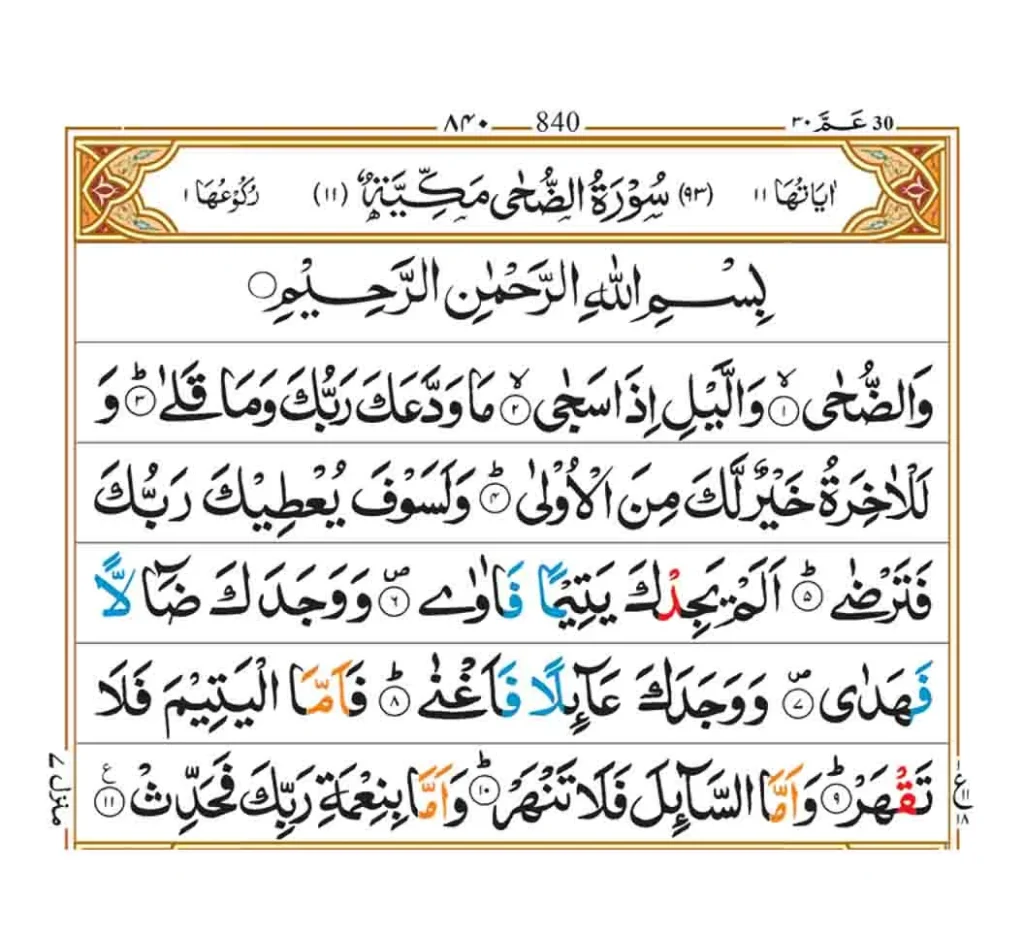 30 عَـمَّ ٣٠ 840 ٨٤٠
اٰيَاتُهَا ١١ (٩٣) سُوْرَةُ الضُّحٰى مَكِّيَّةٌ (١١) رُكُوْعُهَا ١
بِسْمِ اللّٰهِ الرَّحْمٰنِ الرَّحِيْمِ ○
وَالضُّحٰى ۙ‏﴿١﴾ وَالَّيْلِ اِذَا سَجٰى ۙ‏﴿٢﴾ مَا وَدَّعَكَ رَبُّكَ وَمَا قَلٰى ؕ‏﴿٣﴾ وَ
لَلْاٰخِرَةُ خَيْرٌ لَّكَ مِنَ الْاُوْلٰى ؕ‏﴿٤﴾ وَلَسَوْفَ يُعْطِيْكَ رَبُّكَ
فَتَرْضٰى ؕ‏﴿٥﴾ اَلَمْ يَجِدْكَ يَتِيْمًا فَاٰوٰى ۖ‏﴿٦﴾ وَوَجَدَكَ ضَآلًّا
فَهَدٰى ۖ‏﴿٧﴾ وَوَجَدَكَ عَآئِلًا فَاَغْنٰى ؕ‏﴿٨﴾ فَاَمَّا الْيَتِيْمَ فَلَا
تَقْهَرْ ؕ‏﴿٩﴾ وَاَمَّا السَّآئِلَ فَلَا تَنْهَرْ ؕ‏﴿١٠﴾ وَاَمَّا بِنِعْمَةِ رَبِّكَ فَحَدِّثْ ﴿١١﴾ ع
ع ١١ ١٨
منزل ٧